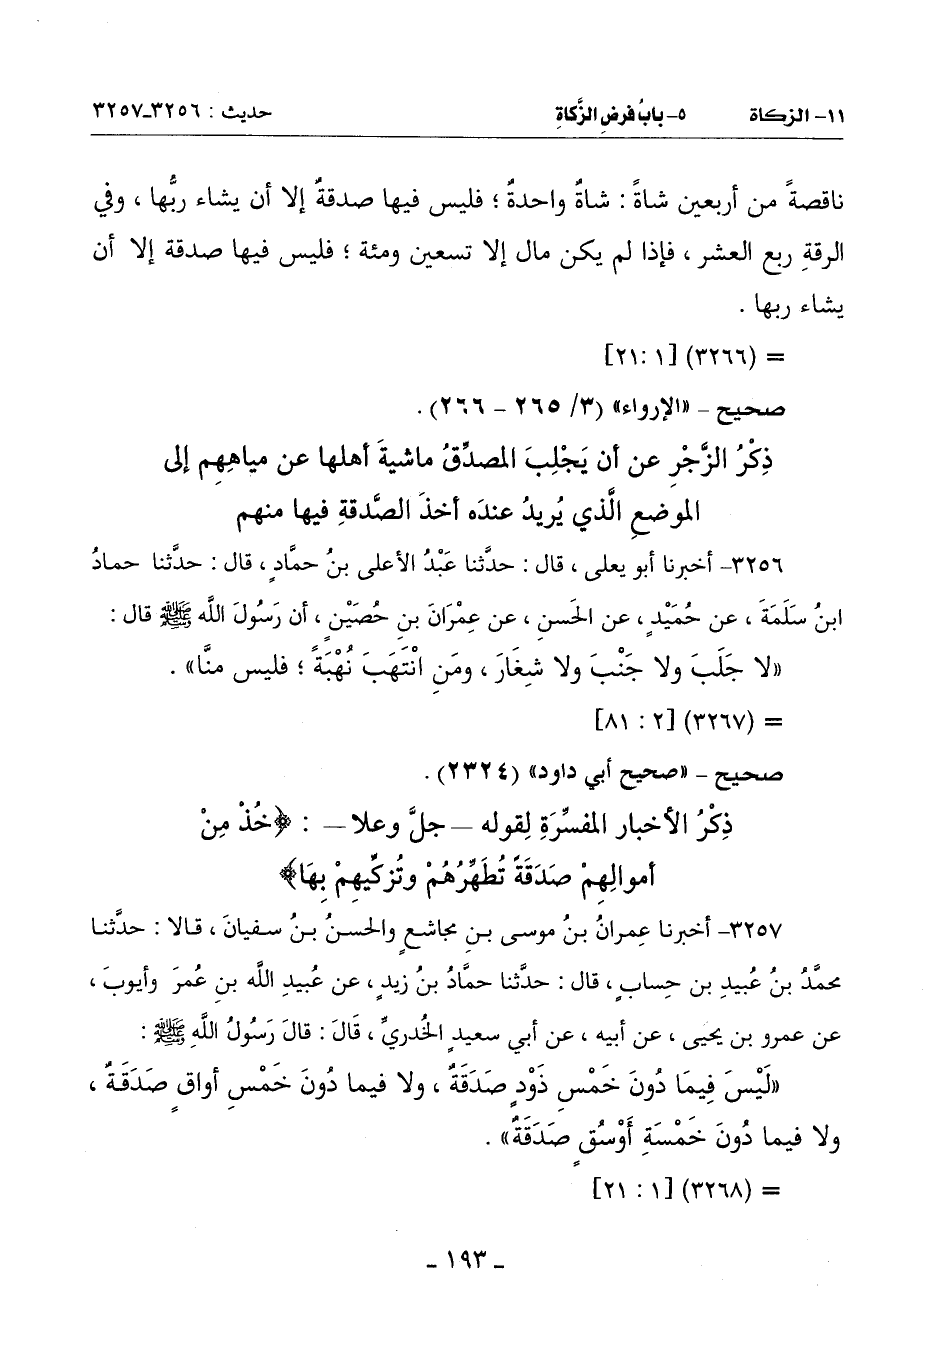 ١١- الزكاة ٥- بابُ فرضِ الزَّكاةِ حديث : ٣٢٥٦-٣٢٥٧
ناقصةً من أربعين شاةً : شاةٌ واحدةٌ ؛ فليس فيها صدقةٌ إلا أن يشاء ربُّها ، وفي
الرقةِ ربع العشر ، فإذا لم يكن مال إلا تسعين ومئة ؛ فليس فيها صدقة إلا أن
يشاء ربها .
= (٣٢٦٦) [١ :٢١]
صحيح - «الإرواء» (٣/ ٢٦٥ - ٢٦٦) .
ذِكْرُ الزَّجْرِ عن أن يَجْلِبَ المصدِّقُ ماشيةَ أهلها عن مياهِهِم إلى
الموضعِ الَّذي يُريدُ عندَه أخذَ الصَّدقةِ فيها منهم
٣٢٥٦- أخبرنا أبو يعلى ، قال : حدَّثنا عَبْدُ الأعلى بنُ حمَّادٍ ، قال : حدَّثنا حمادُ
ابنُ سَلَمَةَ ، عن حُمَيْدٍ ، عن الحَسنِ ، عن عِمْرَانَ بنِ حُصَيْنٍ ، أن رَسُولَ اللَّه ﷺ قال :
«لا جَلَبَ ولا جَنْبَ ولا شِغَارَ ، ومَنِ انْتَهَبَ نُهْبَةً ؛ فليس منَّا» .
= (٣٢٦٧) [٢ : ٨١]
صحيح - «صحيح أبي داود» (٢٣٢٤) .
ذِكْرُ الأخبار المفسِّرَةِ لِقوله – جلَّ وعلا – : ﴿خُذْ مِنْ
أموالِهِمْ صَدَقَةً تُطَهِّرُهُمْ وتُزكِّيهِمْ بِهَا﴾
٣٢٥٧- أخبرنا عِمرانُ بنُ موسى بنِ مجاشعٍ والحسنُ بنُ سفيانَ ، قالا : حدَّثنا
محمَّدُ بنُ عُبيدِ بنِ حِسابٍ ، قال : حدَّثنا حمَّادُ بنُ زيدٍ ، عن عُبيدِ اللَّه بنِ عُمرَ وأيوبَ ،
عن عمرو بن يحيى ، عن أبيه ، عن أبي سعيدٍ الخُدريِّ ، قَالَ : قالَ رَسُولُ اللَّهِ ﷺ :
«لَيْسَ فِيمَا دُونَ خَمْسِ ذَوْدٍ صَدَقَةٌ ، ولا فيما دُونَ خَمْسِ أواقٍ صَدَقَةٌ ،
ولا فيما دُونَ خَمْسَةِ أَوْسُقٍ صَدَقَةٌ» .
= (٣٢٦٨) [١ : ٢١]
- ١٩٣ -